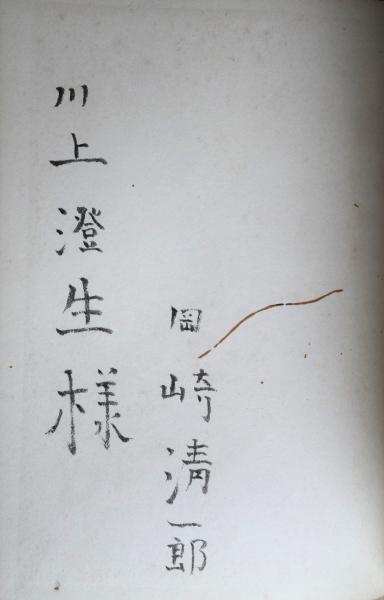 川上澄生様
岡崎清一郎